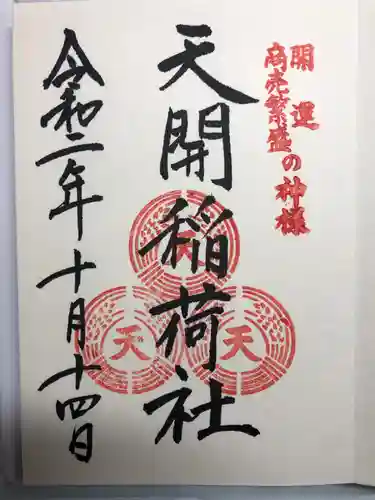 開運
商売繁盛の神様
天開稲荷社
天
天
天
令和二年十月十四日